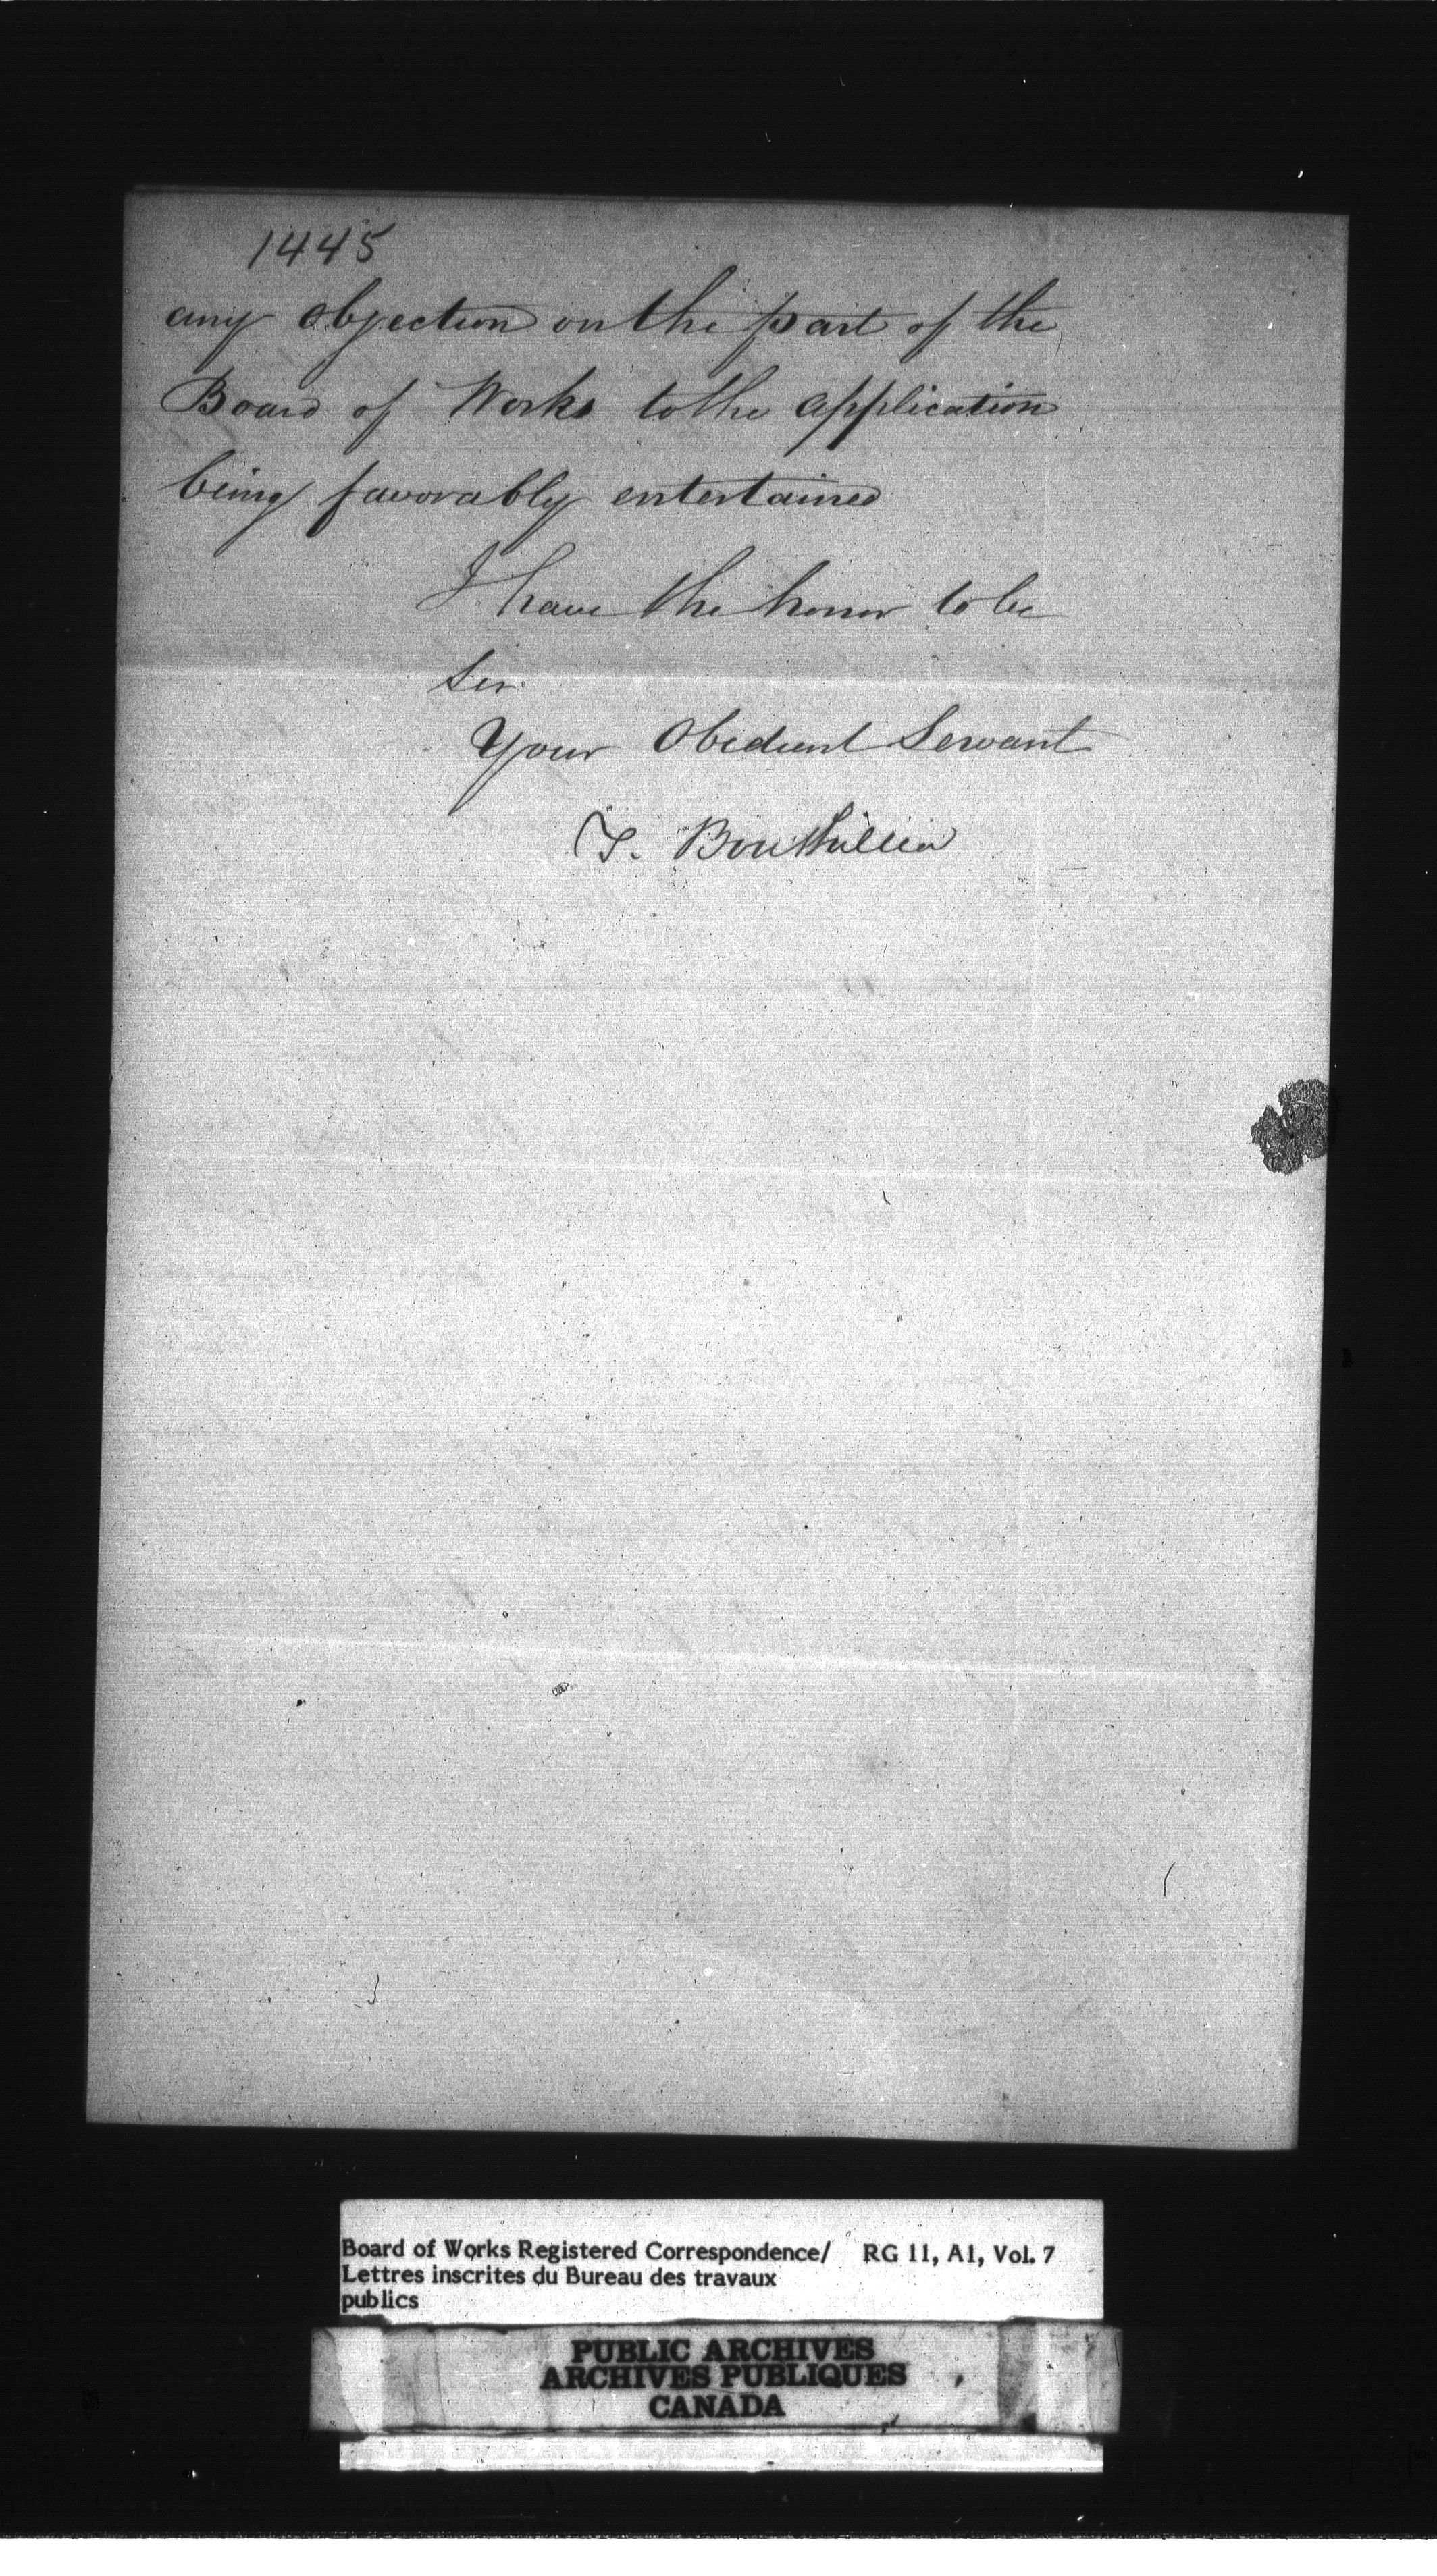 1445
any objection on the part of the
Board of Works to the application
being favorably entertained
I have the honor to be
Sir.
Your Obedient Servant
T. Bouthillier
Board of Works Registered Correspondence/ RG 11, A1, Vol. 7
Lettres inscrites du Bureau des travaux
publics
PUBLIC ARCHIVES
ARCHIVES PUBLIQUES
CANADA